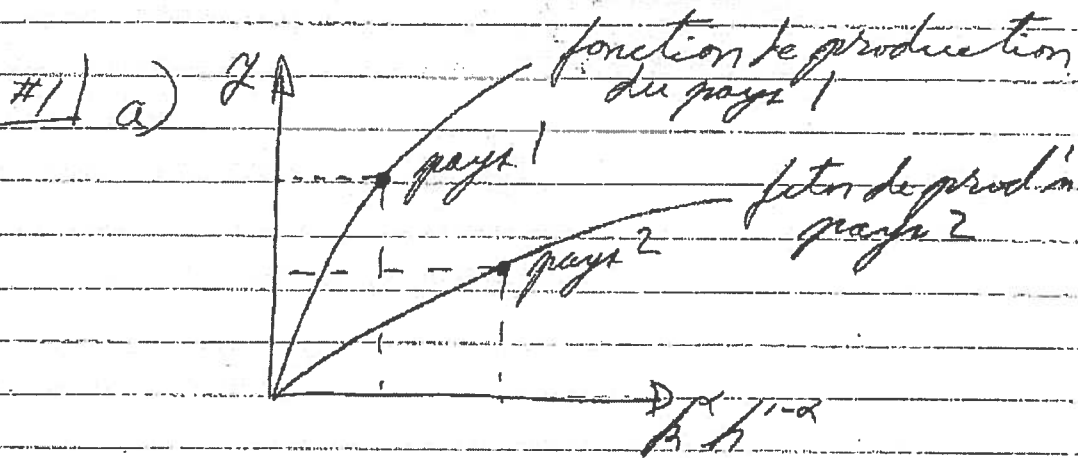 #1 a) y
fonction de production
du pays 1
pays 1
fctn de prod'n
pays 2
pays 2
k^α h^{1-α}